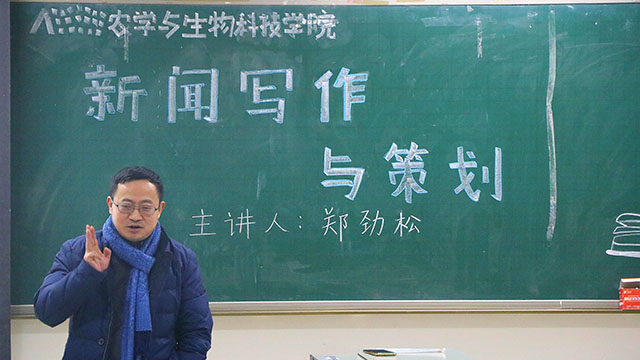 农学与生物科技学院
新闻写作
与策划
主讲人:郑劲松